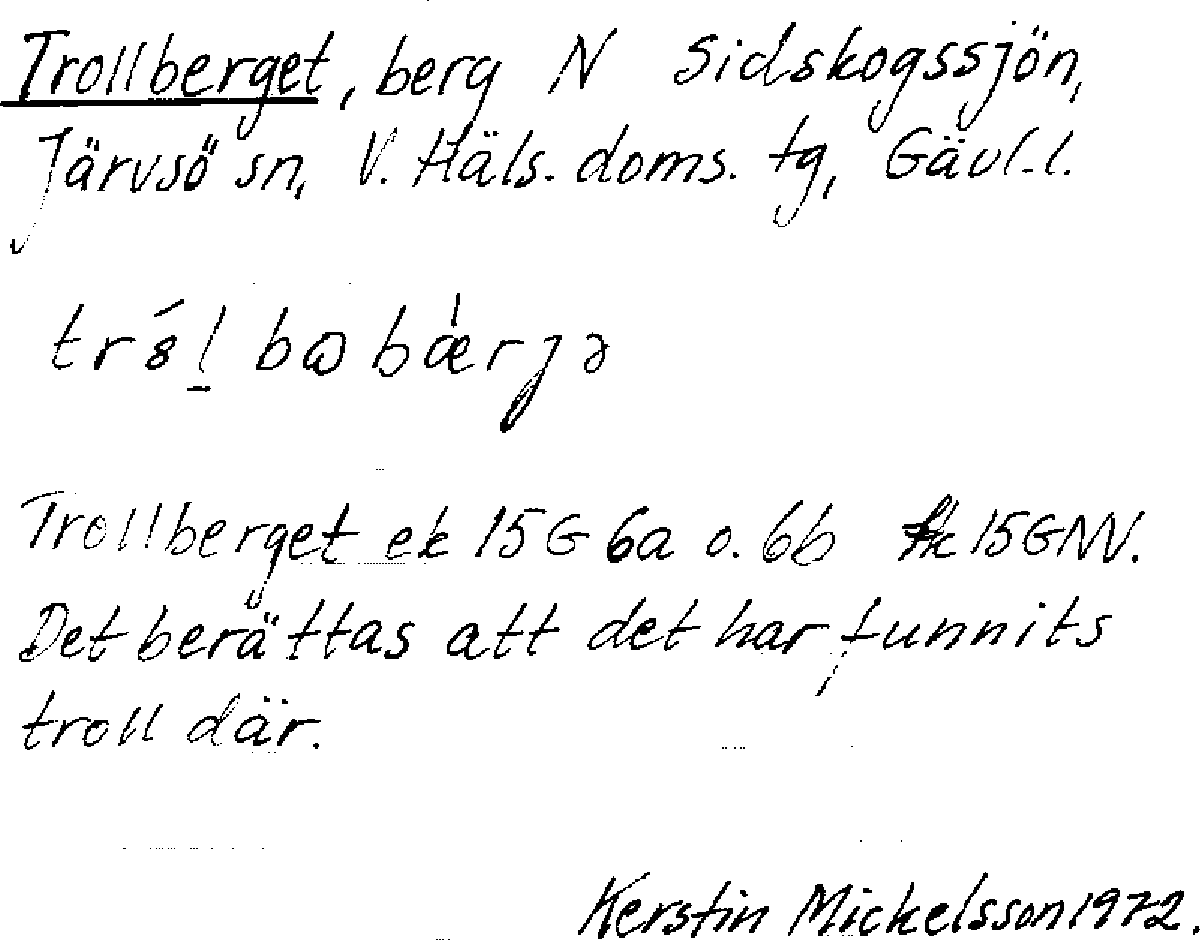 Trollberget, berg N Sidskogssjön,
Järvsö sn, V. Häls. doms. tg, Gävl.l.
Trollberget ek 15G 6a o. 6b fk 15GNV.
Det berättas att det har funnits
troll där.
Kerstin Mickelsson 1972.